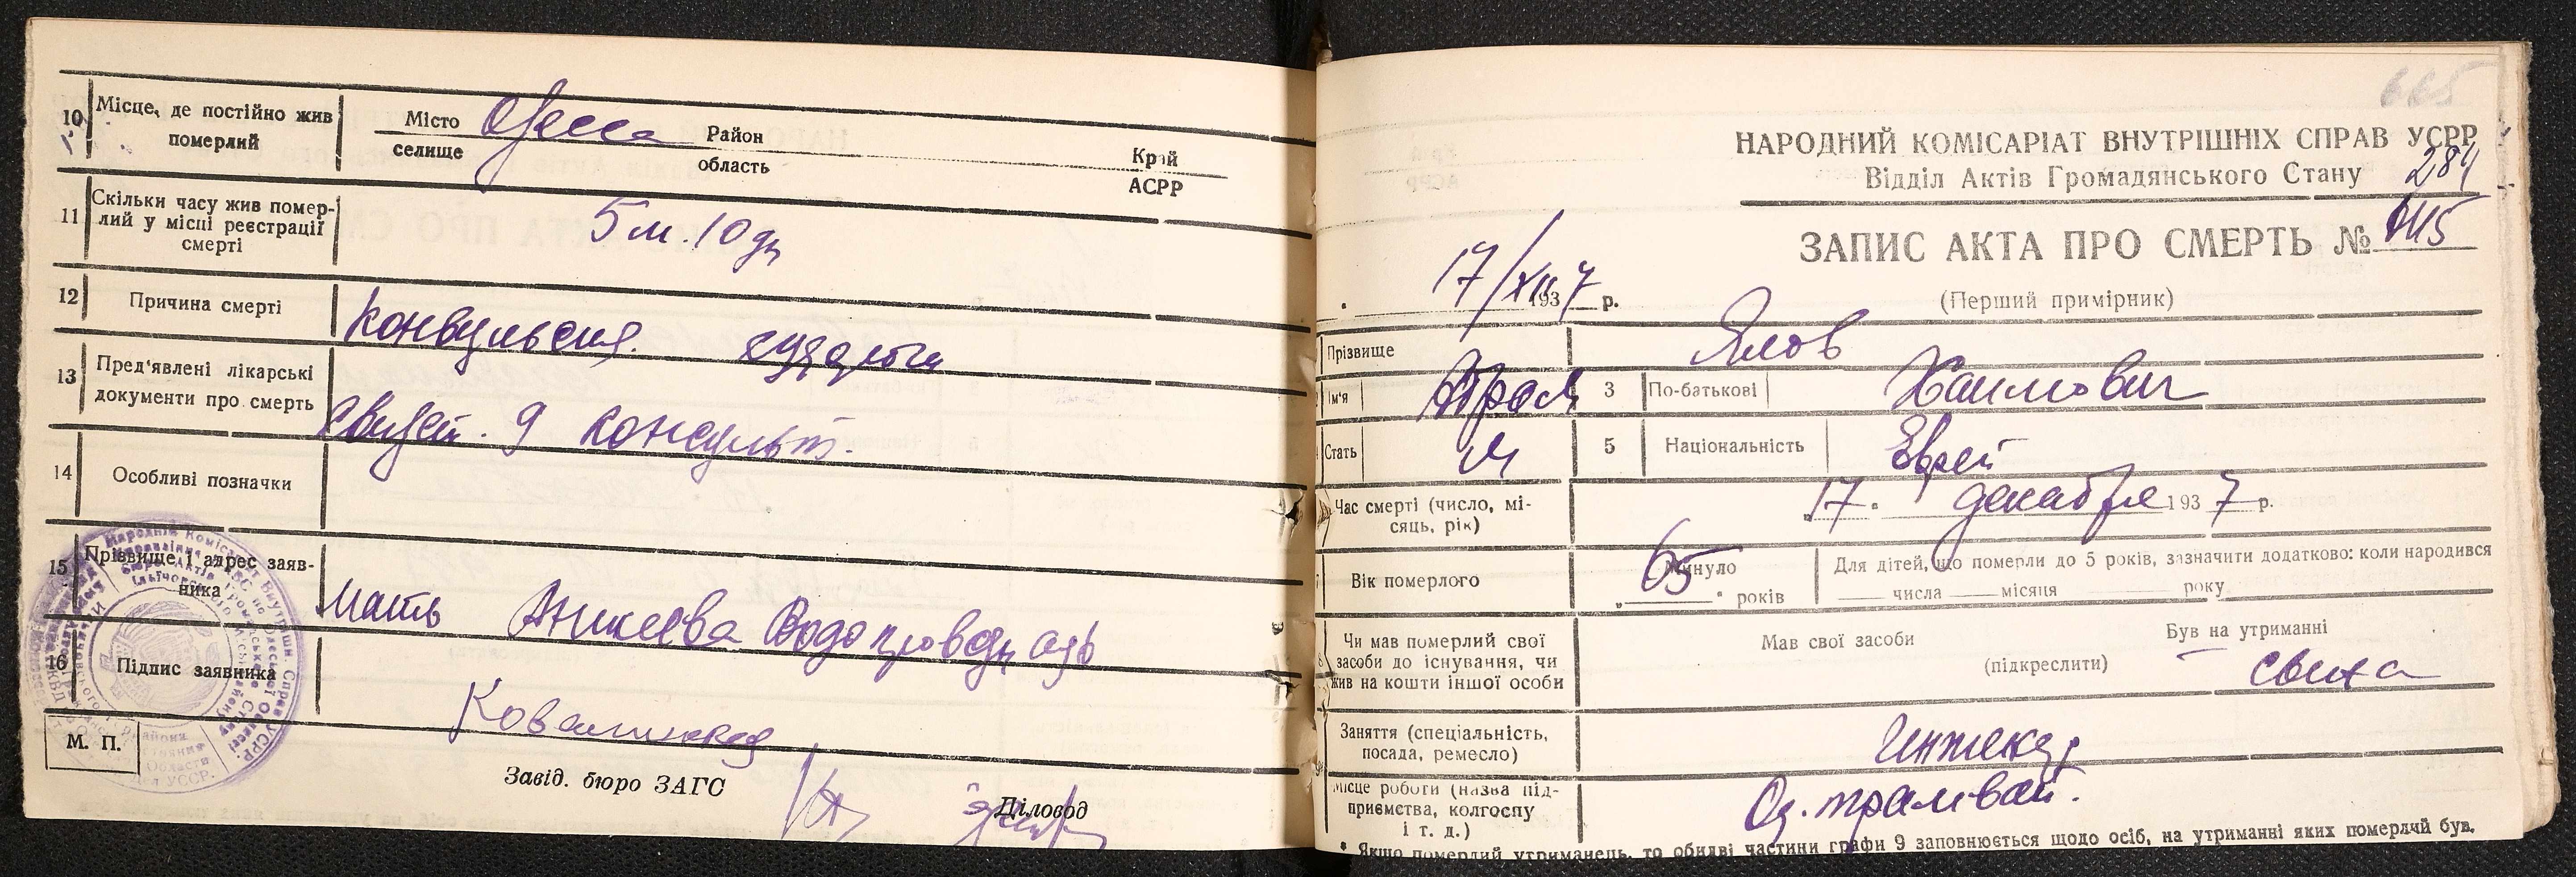 10
Місце, де постійно жив
померлий
Місто
селище
Одесса
Район
область
Край
АСРР
11
Скільки часу жив помер-
лий у місці реєстрації
смерті
5 м. 10 дн
12
Причина смерті
Конвульсия
13
Пред'явлені лікарські
документи про смерть
9 консульт.
14
Особливі позначки
15
Прізвище і адрес заяв-
ника
мать Аникеева
16
Підпис заявника
М. П.
Завід. бюро ЗАГС
Діловод
665
НАРОДНИЙ КОМІСАРІАТ ВНУТРІШНІХ СПРАВ УСРР
Відділ Актів Громадянського Стану
284
ЗАПИС АКТА ПРО СМЕРТЬ №
(Перший примірник)
17/XII 1937 р.
Прізвище
Ялов
Ім'я
Абрам
3
По-батькові
Хаимович
Стать
М
5
Національність
Еврей
Час смерті (число, мі-
сяць, рік)
17 декабря 1937 р.
Вік померлого
Минуло
65
років
Для дітей, що померли до 5 років, зазначити додатково: коли народився
числа місяця року
Чи мав померлий свої
засоби до існування, чи
жив на кошти іншої особи
Мав свої засоби
(підкреслити)
Був на утриманні
сына
Заняття (спеціальність,
посада, ремесло)
Инженер
Місце роботи (назва під-
приємства, колгоспу
і т. д.)
Од. трамвай.
* Якщо померлий утриманець, то обидві частини графи 9 заповнюється щодо осіб, на утриманні яких померлий був.